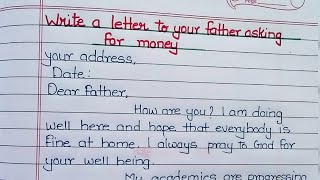 Write a letter to your father asking
for money
your address,
Date:
Dear Father,
How are you? I am doing
well here and hope that everybody is
fine at home. I always pray to God for
your well being.
My academics are progressing